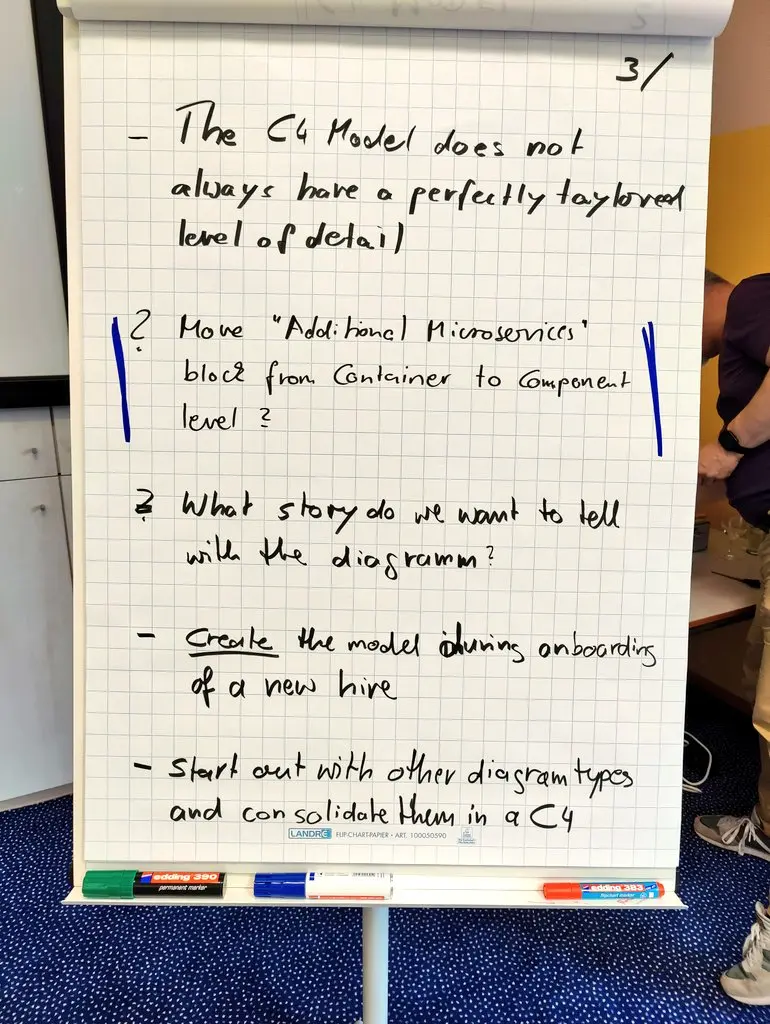 3/
- The C4 Model does not
always have a perfectly taylored
level of detail
? Move "Additional Microservices"
block from Container to Component
level ?
? What story do we want to tell
with the diagramm?
- Create the model during onboarding
of a new hire
- Start out with other diagram types
and consolidate them in a C4
LANDRÉ FLIP-CHART-PAPIER • ART. 100050590
edding 390
permanent marker
edding 383
flipchart marker